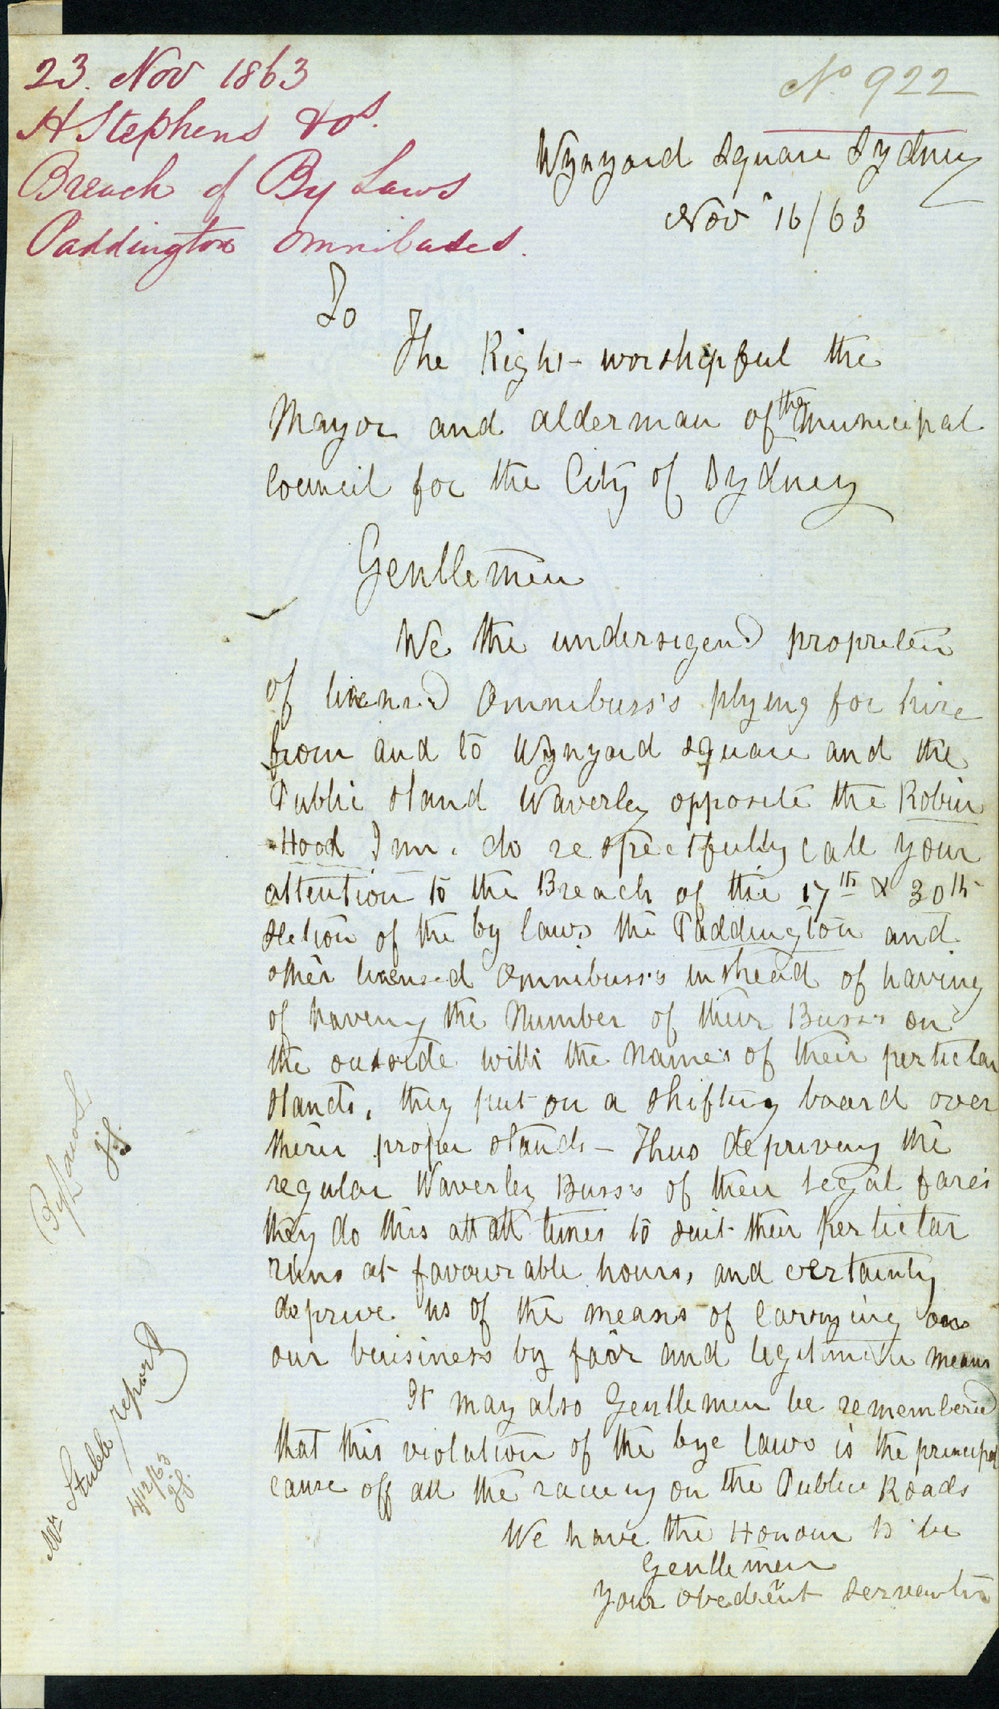 23. Nov 1863
H Stephens & ors.
Breach of By Laws
Paddington Omnibuses.
No. 922
Wynyard Square Sydney
Nov 16/63
To
The Right-worshipful the
Mayor and alderman of the Municipal
Council for the City of Sydney
Gentlemen
We the undersigend propreters
of licensed Omnibuss's plying for hire
from and to Wynyard square and the
Public stand Waverley opposite the Robin
Hood Inn. do respectfully call your
attention to the Breach of the 17th & 30th
section of the by laws the Paddington and
other licensed Omnibuss's insthead of having
of having the Number of their Busses on
the outside with the Names of their perticlar
stands, they put on a shifting board over
their proper stands - Thus depriving the
regular Waverley Buss's of their legal fares
they do this att all times to suit their perticlar
runs at favourable hours, and certainly
deprive us of the means of carrying on
our buisiness by fair and legitimate means
It may also Gentlemen be remembered
that this violation of the bye laws is the principal
cause off all the racing on the Public Roads
We have the Honour to be
Gentlemen
Your obedient servants
By Laws
Mr Stubbs report
4/12/63